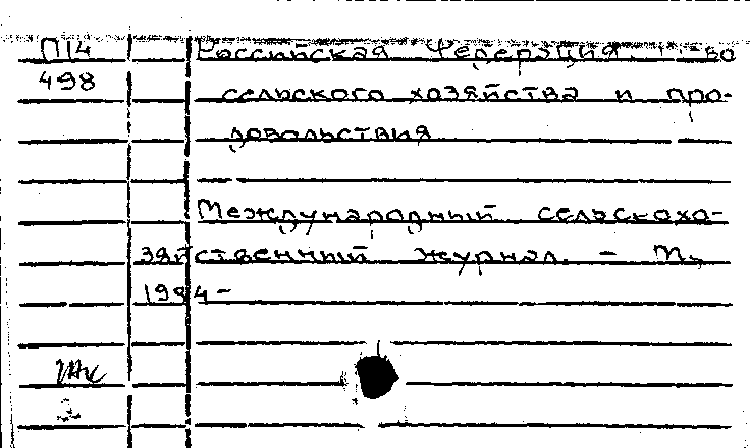 П14 Российская Федерация. М-во
498 сельского хозяйства и про-
довольствия
Международный сельскохо-
зяйственный журнал. - М.,
1984 -